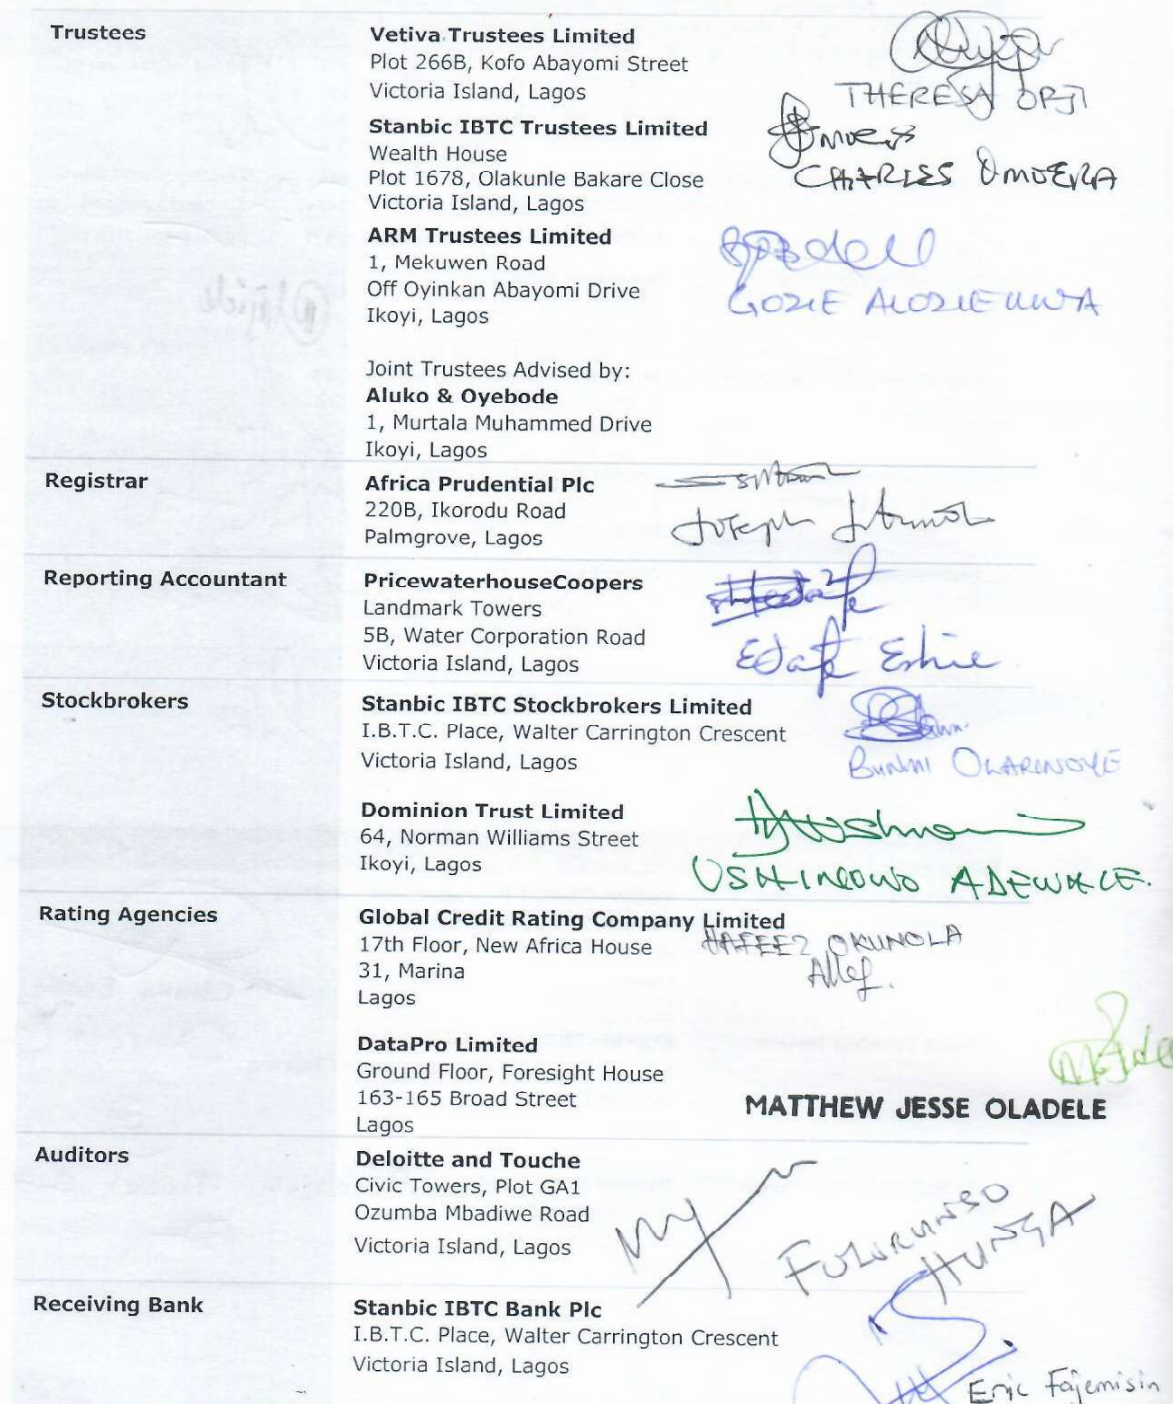 Trustees
Vetiva Trustees Limited
Plot 266B, Kofo Abayomi Street
Victoria Island, Lagos
THERESA ORJI
Stanbic IBTC Trustees Limited
Wealth House
Plot 1678, Olakunle Bakare Close
Victoria Island, Lagos
CHARLES OMOERA
ARM Trustees Limited
1, Mekuwen Road
Off Oyinkan Abayomi Drive
Ikoyi, Lagos
GOZIE
Joint Trustees Advised by:
Aluko & Oyebode
1, Murtala Muhammed Drive
Ikoyi, Lagos
Registrar
Africa Prudential Plc
220B, Ikorodu Road
Palmgrove, Lagos
Joseph
Reporting Accountant
PricewaterhouseCoopers
Landmark Towers
5B, Water Corporation Road
Victoria Island, Lagos
Edafe Eshie
Stockbrokers
Stanbic IBTC Stockbrokers Limited
I.B.T.C. Place, Walter Carrington Crescent
Victoria Island, Lagos
BUNMI OLARINOYE
Dominion Trust Limited
64, Norman Williams Street
Ikoyi, Lagos
ADEWALE.
Rating Agencies
Global Credit Rating Company Limited
17th Floor, New Africa House
31, Marina
Lagos
HAFEEZ OKUNOLA
DataPro Limited
Ground Floor, Foresight House
163-165 Broad Street
Lagos
MATTHEW JESSE OLADELE
Auditors
Deloitte and Touche
Civic Towers, Plot GA1
Ozumba Mbadiwe Road
Victoria Island, Lagos
Receiving Bank
Stanbic IBTC Bank Plc
I.B.T.C. Place, Walter Carrington Crescent
Victoria Island, Lagos
Eric Fajemisin